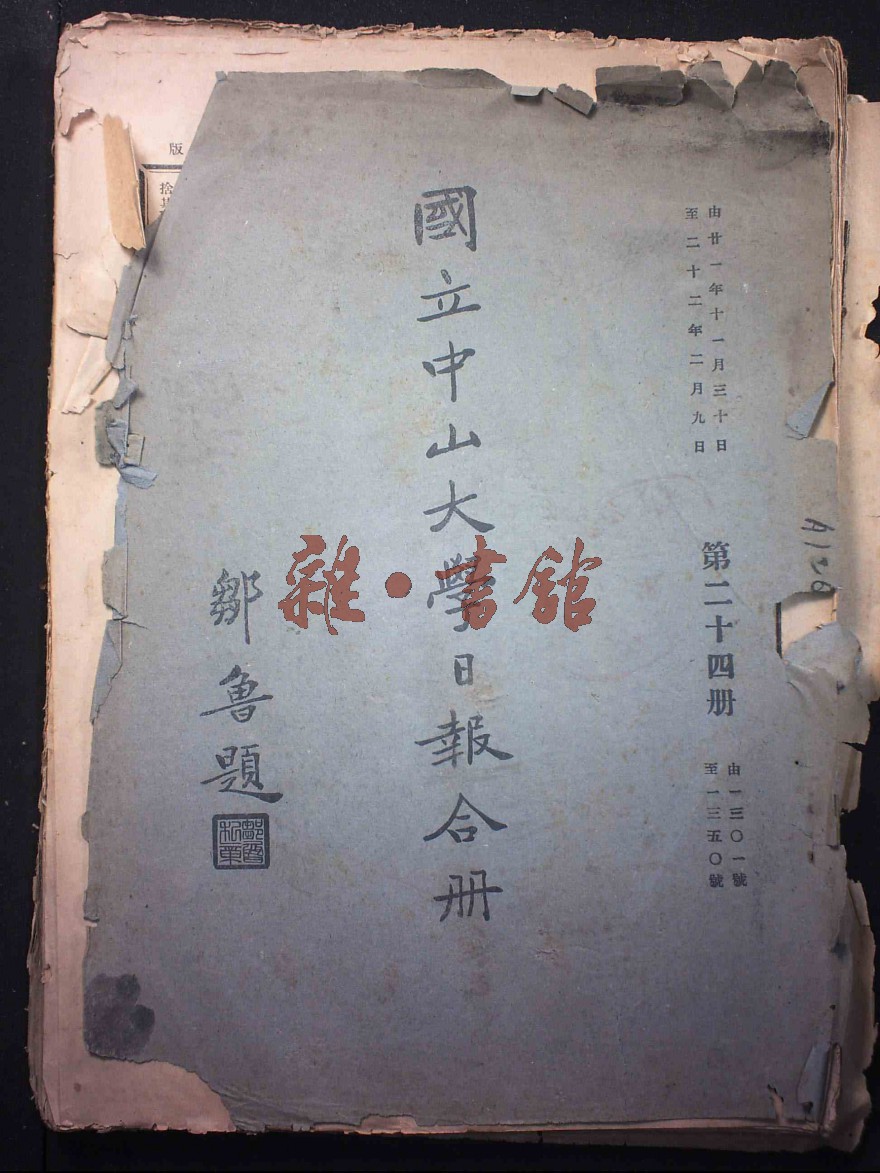 由廿一年十一月三十日
至二十二年二月九日
第二十四册
由一三〇一號
至一三五〇號
國立中山大學日報合册
鄒魯題
雜·書館
版
捨